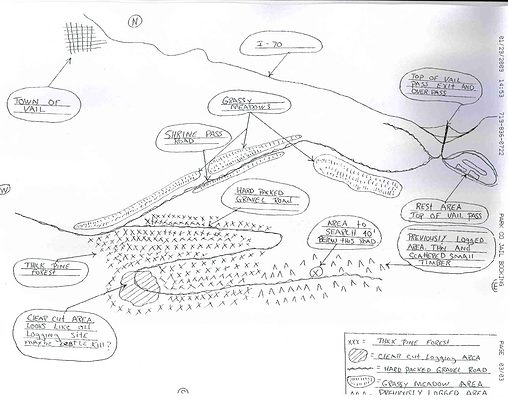 N
I-70
TOWN OF
VAIL
GRASSY
MEADOWS
TOP OF VAIL
PASS EXIT AND
OVERPASS
SHRINE PASS
ROAD
REST AREA
TOP OF VAIL PASS
HARD PACKED
GRAVEL ROAD
W
AREA to
SEARCH
BELOW THIS ROAD
PREVIOUSLY LOGGED
AREA. THIN AND
SCATTERED SMALL
TIMBER
THICK PINE
FOREST
CLEAR CUT AREA
LOOKS LIKE OLD
LOGGING SITE
MAYBE BEATLE KILL?
XXX = THICK PINE FOREST
= CLEAR CUT, LOGGING AREA
= HARD PACKED GRAVEL ROAD
= GRASSY MEADOW AREA
PREVIOUSLY LOGGED AREA
01/29/2009 14:53 719-836-0722
PARK CO JAIL BOOKING
PAGE 03/03